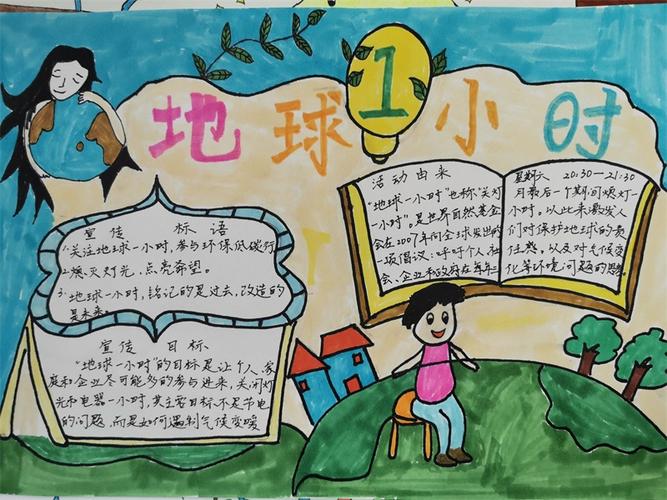 地球1小时
宣传标语
1.关注地球一小时,参与环保低碳行
2.熄灭灯光,点亮希望。
3.地球一小时,铭记的是过去,改造的
是未来
宣传目标
"地球一小时"的目标是让个人、家
庭和企业尽可能多的参与进来,关闭灯
光和电器一小时,其主要目标不是节电
的问题,而是如何遏制气候变暖
活动由来
"地球一小时"也称"关灯
一小时"。是世界自然基金
会在2007年向全球发出的
一项倡议:呼吁个人、社
会、企业和政府在每年三
星期六 20:30—21:30
月最后一个期间熄灯一
小时。以此来激发人
们对保护地球的责
任感,以及对气候变
化等环境问题的思